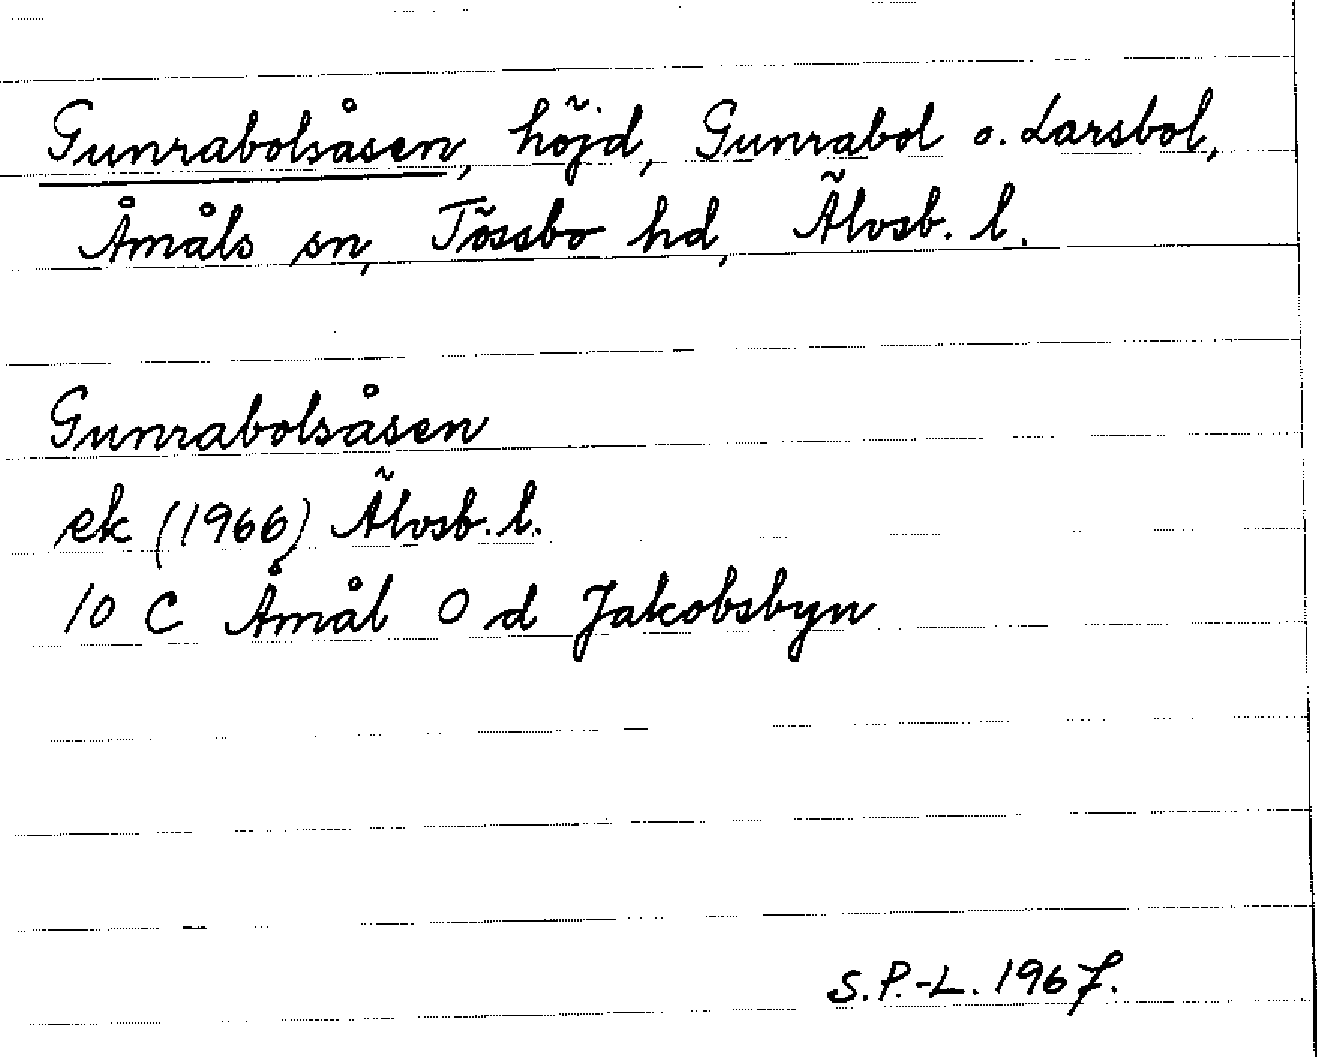 Gunrabolsåsen, höjd, Gunrabol o. Larsbol,
Åmåls sn, Tössbo hd, Älvsb. l.
Gunrabolsåsen
ek (1966) Älvsb. l.
10 C Åmål O d Jakobsbyn
S.P.-L. 1967.